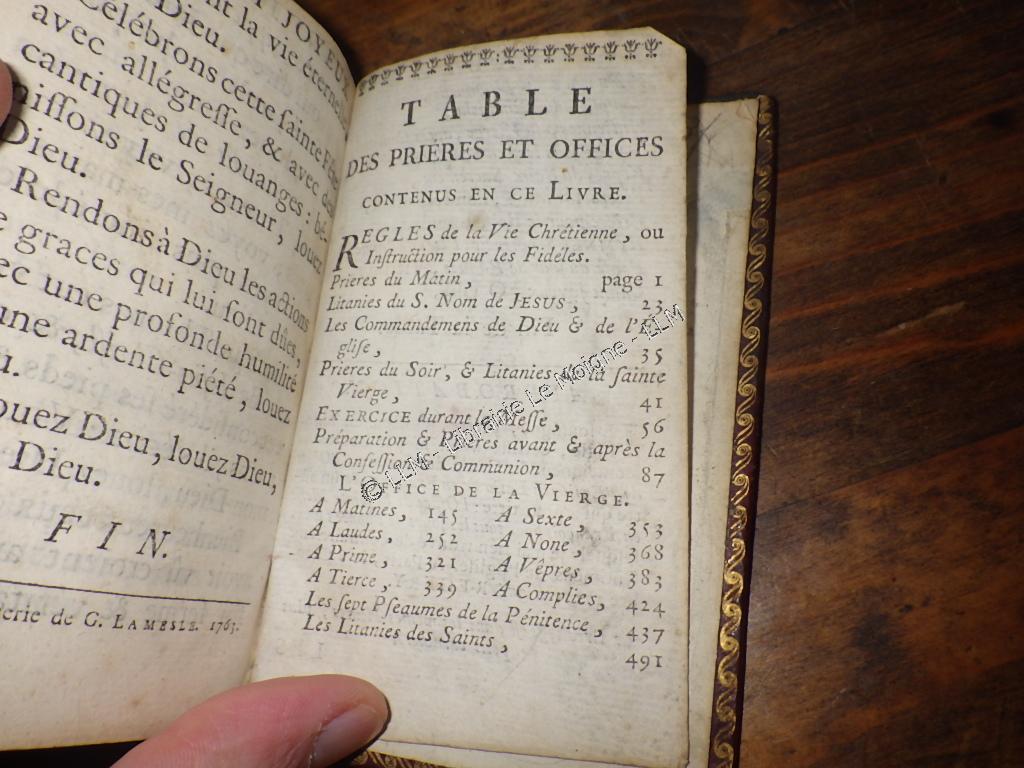 JOYEU
nt la vie éternelle
Dieu.
Célébrons cette sainte Fête
avec allégresse, & avec des
cantiques de louanges : bé-
nissons le Seigneur, louez
Dieu.
Rendons à Dieu les actions
de graces qui lui sont dûes,
avec une profonde humilité
une ardente piété, louez
Dieu.
Louez Dieu, louez Dieu,
Dieu.
FIN.
erie de G. LAMESLE. 1763.
TABLE
DES PRIÉRES ET OFFICES
CONTENUS EN CE LIVRE.
REGLES de la Vie Chrétienne, ou
Instruction pour les Fidéles.
Prieres du Matin, page 1
Litanies du S. Nom de JESUS, 23
Les Commandemens de Dieu & de l'E-
glise, 35
Prieres du Soir, & Litanies de la sainte
Vierge, 41
EXERCICE durant la Messe, 56
Préparation & Prieres avant & après la
Confession & Communion, 87
L'OFFICE DE LA VIERGE.
A Matines, 145 A Sexte, 353
A Laudes, 252 A None, 368
A Prime, 321 A Vêpres, 383
A Tierce, 339 A Complies, 424
Les sept Pseaumes de la Pénitence, 437
Les Litanies des Saints, 491
© LLM - Librairie Le Moigne - LLM